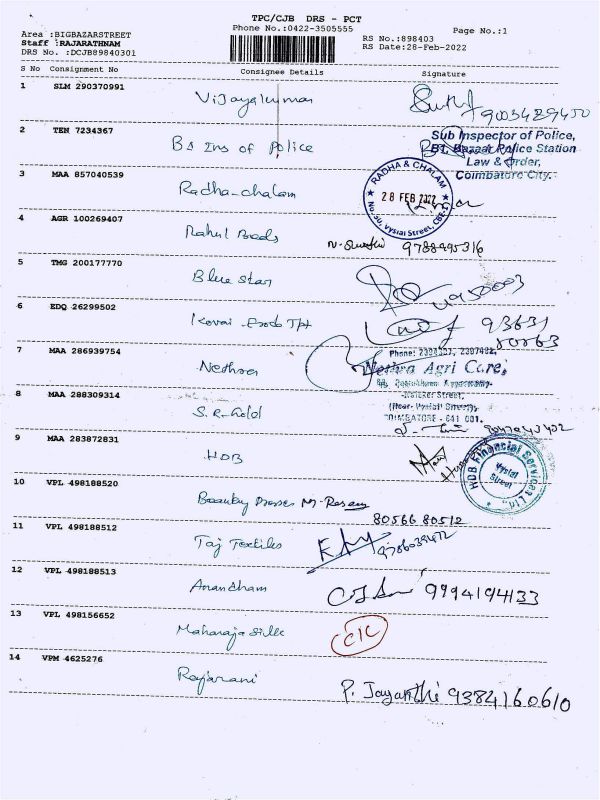 TPC/CJB DRS - PCT
Phone No.:0422-3505555
Area :BIGBAZARSTREET
Staff :RAJARATHNAM
DRS No. :DCJB89840301
RS No.:898403
RS Date:28-Feb-2022
Page No.:1
S No Consignment No Consignee Details Signature
1 SLM 290370991 Vijayakumar 9003429450
2 TEN 7234367 B1 Ins of Police
Sub Inspector of Police,
B1, Bazaar Police Station
Law & Order,
Coimbatore City.
3 MAA 857040539 Radha-chalam
RADHA & CHALAM
28 FEB 2022
No. 30, Vysial Street, CBE-1
4 AGR 100269407 Rahul Beads 9788995316
5 TMG 200177770 Blue Star
6 EDQ 26299502 Kovai-Erode Tpt 93631
80863
7 MAA 286939754 Nethra
Nethra Agri Care,
(Near- Vysial Street),
COIMBATORE - 641 001.
8 MAA 288309314 S.R-Gold
9 MAA 283872831 HDB
HDB Financial Services Ltd.
Vysial
Street
10 VPL 498188520 M-Rasam
80566 80512
11 VPL 498188512 Taj Textiles
12 VPL 498188513 Anandham 9994194133
13 VPL 498156652 Maharaja Silk C/C
14 VPM 4625276 Rajarani P. Jayanthi 9384160610